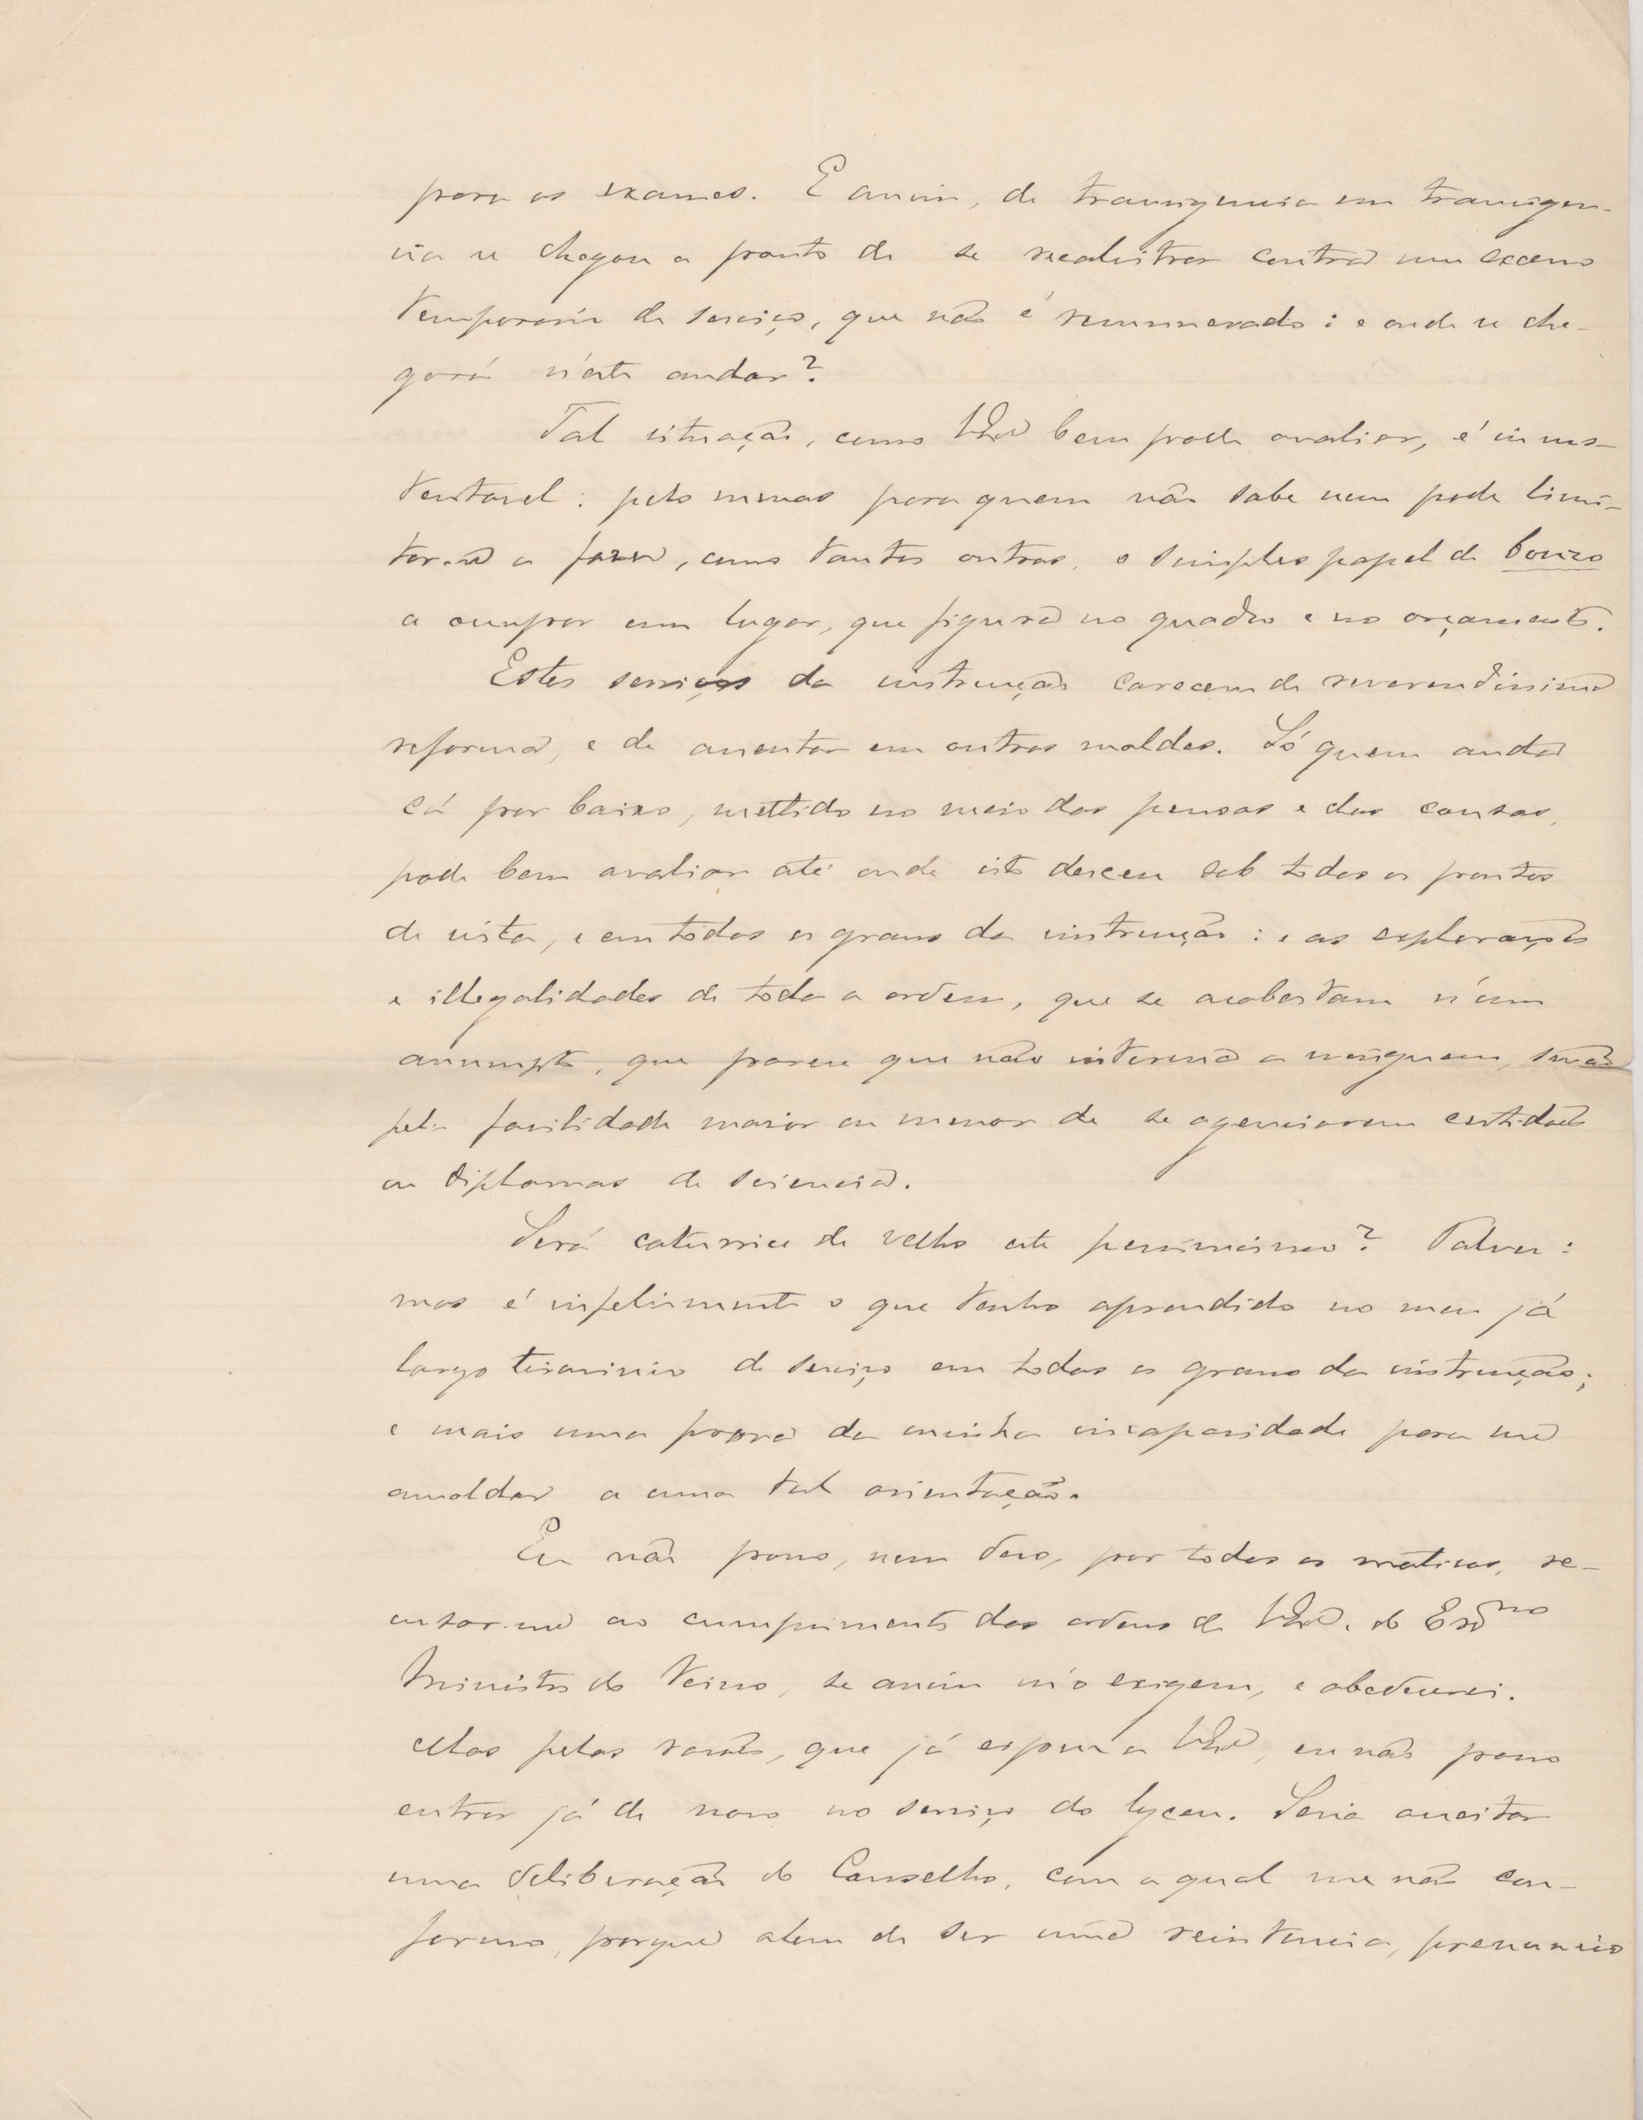 para os exames. E assim, de transigencia em transigen-
cia se chegou a ponto de se recalcitrar contra um excesso
temporario de serviço, que não é remunerado: e onde se che-
gará n'este andar?
Tal situação, como V. Ex.ª bem pode avaliar, é insus-
tentavel: pelo menos para quem não sabe nem pode limi-
tar-se a fazer, como tantos outros, o simples papel de bonzo
a occupar um lugar, que figura no quadro e no orçamento.
Estes serviços da instrucção carecem de reverendissima
reforma, e de assentar em outros moldes. Só quem anda
cá por baixo, mettido no meio das pessoas e das cousas,
pode bem avaliar até onde isto desceu sob todos os pontos
de vista, e em todos os graus da instrucção: e as explorações
e illegalidades de toda a ordem, que se acobertam n'um
assumpto, que parece que não interessa a ninguem, senão
pela facilidade maior ou menor de se agenciarem certidões
ou diplomas de sciencia.
Será caturrice de velho este pessimismo? Talvez:
mas é infelizmente o que tenho aprendido no meu já
largo tirocinio de serviço em todos os graus da instrucção;
e mais uma prova da minha incapacidade para me
amoldar a uma tal orientação.
Eu não posso, nem devo, por todos os motivos, re-
cusar-me ao cumprimento das ordens de V. Ex.ª e do Exmo
Ministro do Reino, se assim m'o exigem, e obedecerei.
Mas pelas razões, que já expuz a V. Ex.ª, eu não posso
entrar já de novo no serviço do lyceu. Seria acceitar
uma deliberação do Conselho, com a qual me não con-
formo, porque alem de ser uma reintencia, prenuncio